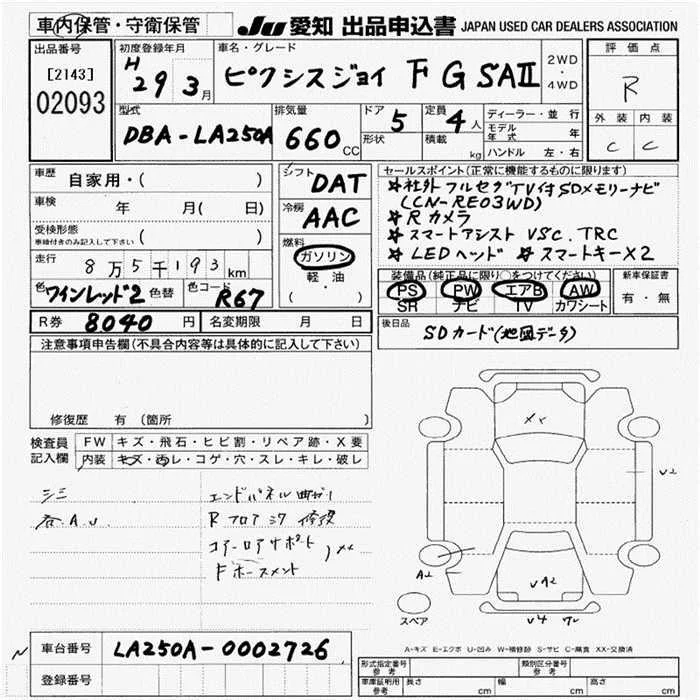 車内保管・守衛保管
JU 愛知 出品申込書 JAPAN USED CAR DEALERS ASSOCIATION
出品番号
[2143]
02093
初度登録年月
H 29 3月
車名・グレード
ピクシスジョイ F G SAⅡ
2WD
・
4WD
評価点
R
型式
DBA-LA250A
排気量
660 CC
ドア 5
形状
定員 4人
積載 kg
ディーラー・並行
モデル年式 年
ハンドル 左・右
外装 内装
C C
車歴 自家用・( )
車検 年 月( 日)
受検形態
車検付きのみ記入して下さい ( )
走行 8万5千193km
色 ワインレッド2 色替 色コード R67
シフト DAT
冷房 AAC
燃料
ガソリン
軽・油
( )
セールスポイント(正常に機能するものに限ります)
★社外フルセグTV付SDメモリーナビ
(CN-RE03WD)
★Rカメラ
★スマートアシスト VSC.TRC
★LEDヘッド ★スマートキーX2
装備品(純正品に限り○をつけてください)
PS PW エアB AW
SR ナビ TV カワシート
新車保証書
有・無
R券 8040円 名変期限 月 日
後日品 SDカード(地図データ)
注意事項申告欄(不具合内容等は具体的に記入して下さい)
修復歴 有(箇所 )
検査員記入欄
FW キズ・飛石・ヒビ割・リペア跡・X要
内装 キズ・凹レ・コゲ・穴・スレ・キレ・破レ
シミ
A.U.
エンドパネル曲ガリ
Rフロア ミク 修復
コアーロアサポート
Fホースメント
XX
XX
U2
A2
UA2
U4
スペア
A-キズ E-エクボ U-凹み W-補修跡 S-サビ C-腐食 XX-交換済
車台番号 LA250A-0002726
登録番号
形式指定番号
参考
類別区分番号
参考
車庫証明用
参考
長さ cm 幅 cm 高さ cm